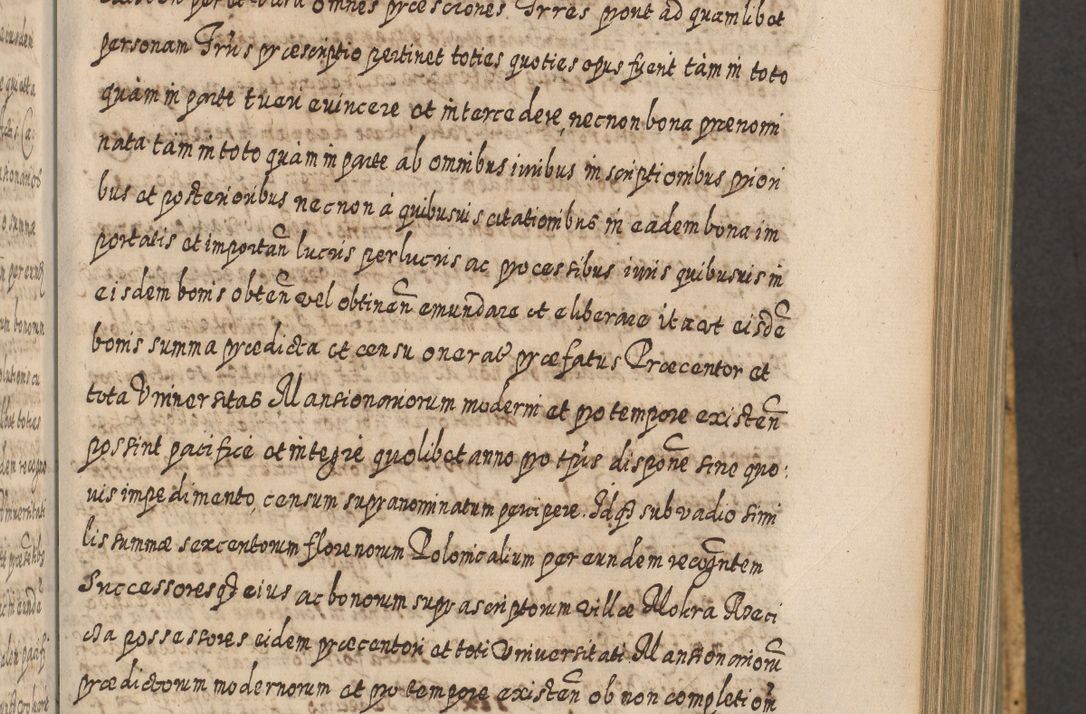 omnes præscriptiones Trræs pront ad quamlibet
personam Trr̃is præscriptio pertinet toties quoties opus fuerit tàm in toto
quàm in parte tueri evincere et intercedere, necnon bona prænomi
nata tàm in toto quàm in parte ab omnibus iuribus inscriptionibus priori
bus et posterioribus necnon à quibusuis citationibus in eadem bona im
portatis et importañ lucris perlucris ac processibus iuris quibusuis in
eisdem bonis obteñ vel obtineñ emundare et eliberare ita vt eisdẽ
bonis summa prædicta et censu onerat præfatus Præcentor et
tota Vniuersitas Mansionariorum moderni et pro tempore existeñ
possint pacificè et integrè quolibet anno pro tp̃is disponẽ sine quo:
uis impedimento, censum supranominatum percipere. Idq3 sub vadio simi
lis summæ sexcentorum florenorum Polonicalium per eundem recogñtem
Successoresq3 eius ac bonorum suprascriptorum villæ Mokra Rzeci
cta possessores eidem præcentori et toti Vniuersitati Mansionariorũ
prædictorum modernorum et pro tempore existeñ ob non completioñ